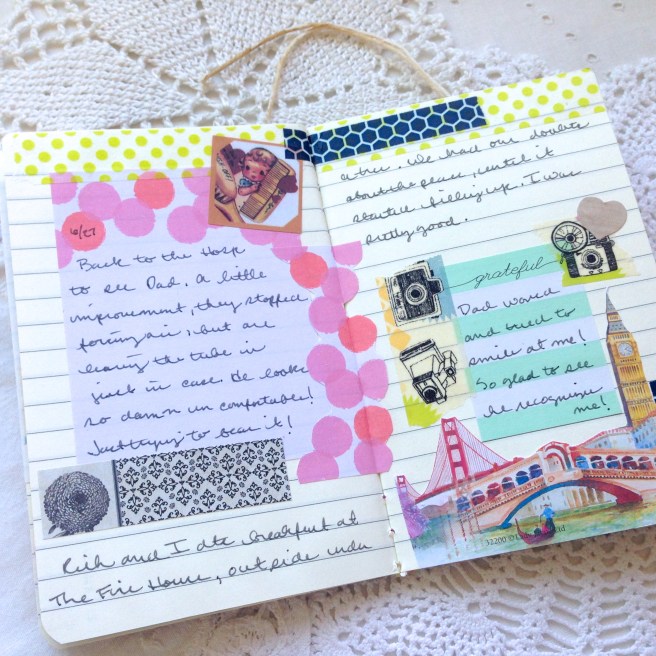 6/27
Back to the Hosp
to see Dad. A little
improvement, they stopped
forcing air, but are
leaving the tube in
just in case. He looks
so damn uncomfortable!
Just trying to bear it!
Rich and I ate breakfast at
The Fire House, outside under
a tree. We had our doubts
about the place, until it
started filling up. I was
pretty good.
grateful
Dad waved
and tried to
smile at me!
So glad to see
he recognize
me!
32200